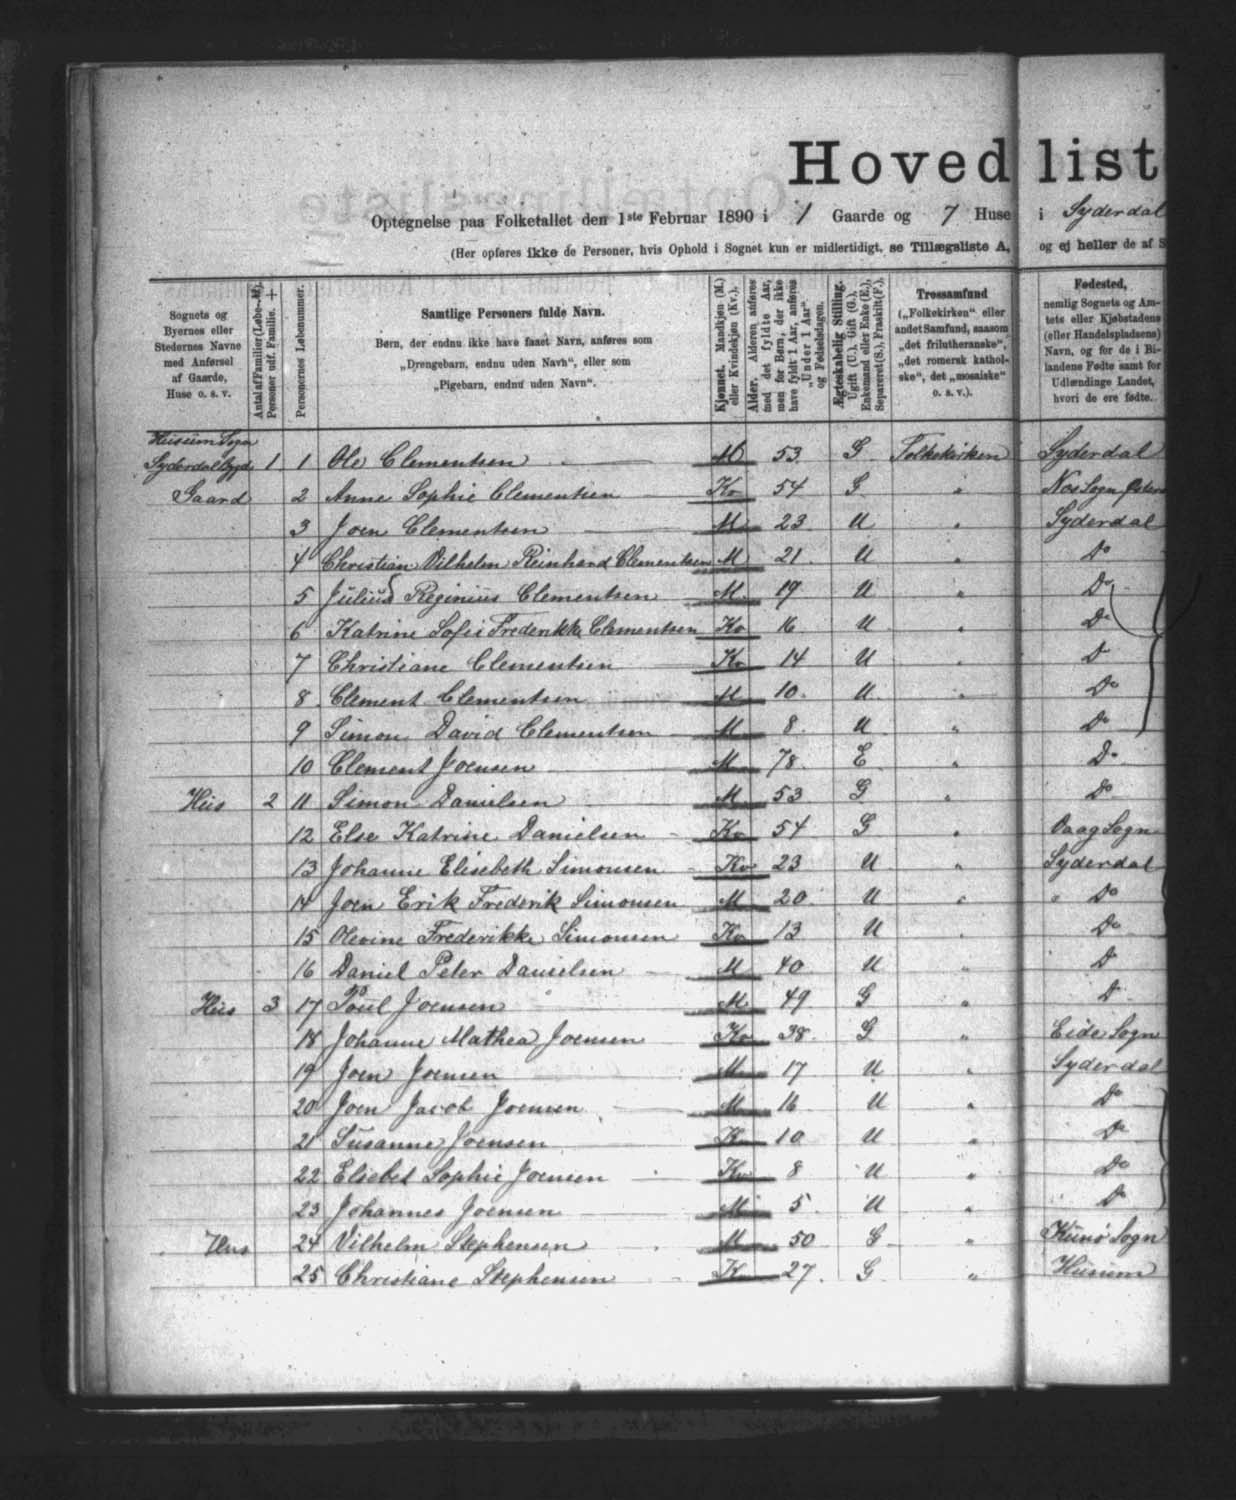 Hovedlist
Optegnelse paa Folketallet den 1ste Februar 1890 i 1 Gaarde og 7 Huse i Syderdal
(Her opføres ikke de Personer, hvis Ophold i Sognet kun er midlertidigt, se Tillægsliste A, og ej heller de af S
Sognets og Byernes eller Stedernes Navne med Anførsel af Gaarde, Huse o. s. v.
Antal af Familier (Løbe-№). Personer udf. Familie. +
Personernes Løbenummer.
Samtlige Personers fulde Navn.
Børn, der endnu ikke have faaet Navn, anføres som
„Drengebarn, endnu uden Navn“, eller som
„Pigebarn, endnu uden Navn“.
Kjønnet. Mandkjøn (M.) eller Kvindekjøn (Kv.).
Alder. Alderen anføres med det fyldte Aar, men for Børn, der ikke have fyldt 1 Aar, anføres „Under 1 Aar“ og Fødselsdagen.
Ægteskabelig Stilling. Ugift (U.), Gift (G.), Enkemand eller Enke (E.), Separeret (S.), Fraskilt (F.).
Trossamfund
(„Folkekirken“ eller andet Samfund, saasom „det frilutheranske“, „det romersk katholske“, det „mosaiske“ o. s. v.).
Fødested,
nemlig Sognets og Amtets eller Kjøbstadens (eller Handelspladsens) Navn, og for de i Bilandene Fødte samt for Udlændinge Landet, hvori de ere fødte.
Husum Sogn
Syderdal Bygd 1 1 Ole Clementsen M 53 G Folkekirken Syderdal
Gaard 2 Anne Sophie Clementsen Kv 54 G " Nes Sogn
3 Joen Clementsen M 23 U " Syderdal
4 Christian Vilhelm Reinhard Clementsen M 21 U Do
5 Julius Reginius Clementsen M. 19 U " Do
6 Katrine Sofie Frederikke Clementsen Kv 16 U " Do
7 Christiane Clementsen Kv 14 U " D
8 Clement Clementsen M 10. U " Do
9 Simon David Clementsen M 8. U " Do
10 Clement Joensen M 78 E " Do
Hus 2 11 Simon Danielsen M 53 G " Do
12 Else Katrine Danielsen Kv 54 G " Vaag Sogn
13 Johanne Elisebeth Simonsen Kv 23 U " Syderdal
14 Joen Erik Frederik Simonsen M 20 U " Do
15 Olevine Frederikke Simonsen Kv 13 U Do
16 Daniel Peter Danielsen M 40 U " D
Hus 3 17 Poul Joensen M 49 G " D
18 Johanne Mathea Joensen Kv 38. G " Eide Sogn
19 Joen Joensen M 17 U " Syderdal
20 Joen Jacob Joensen M 16 U " Do
21 Susanne Joensen K 10 U " Do
22 Elsebet Sophie Joensen Kv 8 U " Do
23 Johannes Joensen M 5 U " Do
Hus 24 Vilhelm Stephensen M 50 G " Kunø Sogn
25 Christiane Stephensen K 27. G " Husum